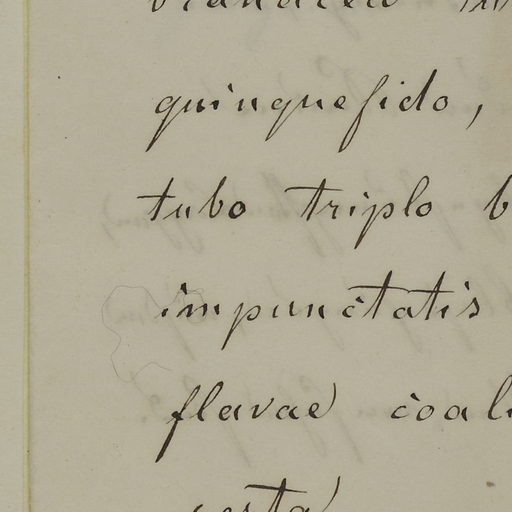 quinquefido,
tubo triplo b
impunctatis
flavae coal